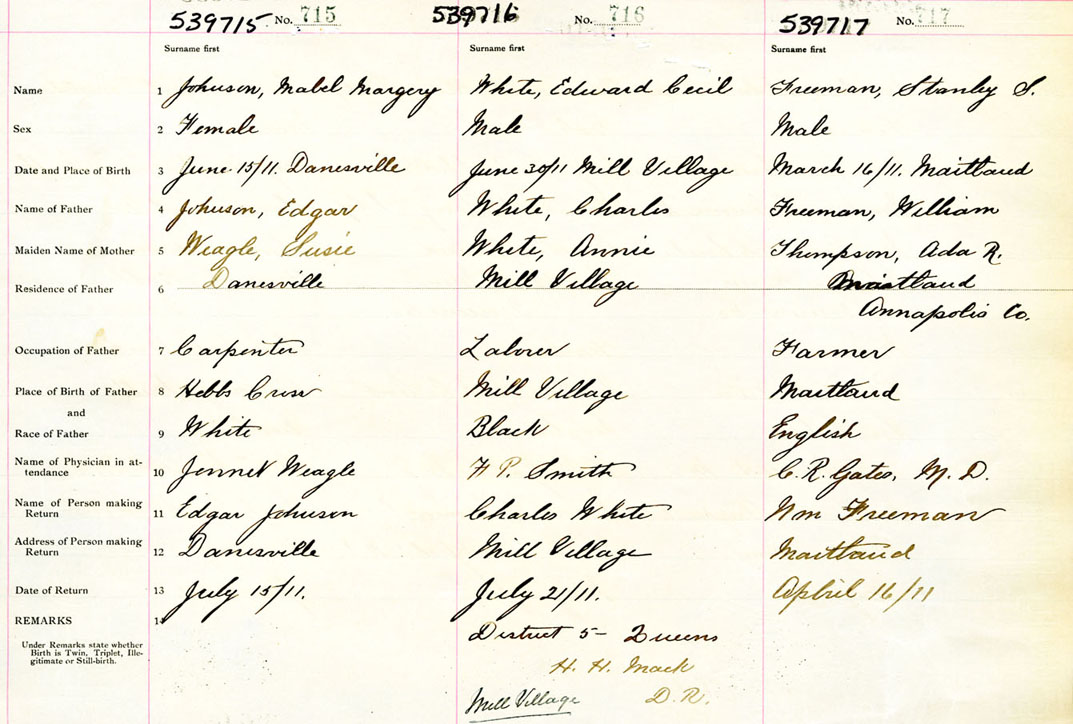 539715 No. 715 539716 No. 716 539717 No. 717
Surname first Surname first Surname first
Name 1 Johnson, Mabel Margery White, Edward Cecil Freeman, Stanley S.
Sex 2 Female Male Male
Date and Place of Birth 3 June 15/11. Danesville June 30/11 Mill Village March 16/11. Maitland
Name of Father 4 Johnson, Edgar White, Charles Freeman, William
Maiden Name of Mother 5 Weagle, Susie White, Annie Thompson, Ada R.
Residence of Father 6 Danesville Mill Village Maitland
Annapolis Co.
Occupation of Father 7 Carpenter Laborer Farmer
Place of Birth of Father 8 Hebbs Cross Mill Village Maitland
and
Race of Father 9 White Black English
Name of Physician in at-
tendance 10 Weagle H P. Smith C. R. Gates, M. D.
Name of Person making
Return 11 Edgar Johnson Charles White Wm Freeman
Address of Person making
Return 12 Danesville Mill Village Maitland
Date of Return 13 July 15/11. July 21/11. April 16/11
REMARKS 14
District 5 - Queens
Under Remarks state whether
Birth is Twin, Triplet, Ille-
gitimate or Still-birth.
H. H. Mack
Mill Village D. R.